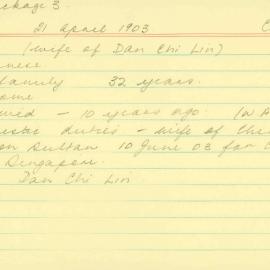 ackage 3.
21 April 1903
(wife of Dan Chi Lin)
nese
family 32 years.
ome
ied - 10 years ago. (W A
estic duties - wife of Che
on Sultan 10 June 03 for
Singapore.
Dan Chi Lin